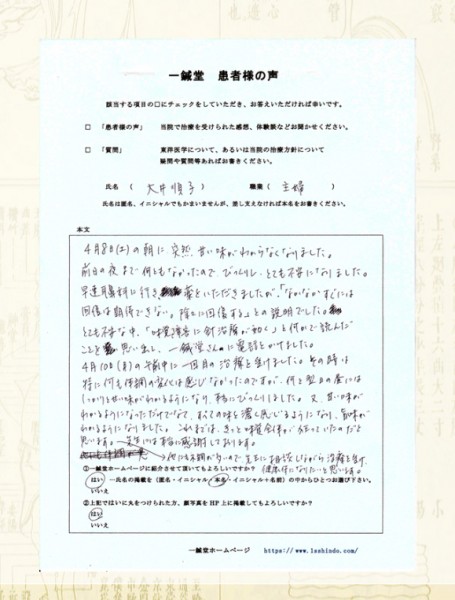 一鍼堂 患者様の声
該当する項目の□にチェックをしていただき、お答えいただければ幸いです。
□ 「患者様の声」 当院で治療を受けられた感想、体験談などお聞かせください。
□ 「質問」 東洋医学について、あるいは当院の治療方針について
疑問や質問等あればお書きください。
氏名 ( 大井順子 ) 職業 ( 主婦 )
氏名は匿名、イニシャルでもかまいませんが、差し支えなければ本名をお書きください。
本文
4月8日(土)の朝に突然、甘い味がわからなくなりました。
前日の夜まで何ともなかったので、びっくりし、とても不安になりました。
早速耳鼻科に行き 薬をいただきましたが、「なかなかすぐには
回復は期待できない。除々に回復する」との説明でした。
とても不安な中、「味覚障害に針治療が効く」と何かで読んだ
ことを思い出し、一鍼堂さんに電話をかけました。
4月10日(月)の午前中に一回目の治療を受けました。その時は
特に何も体調の変化は感じなかったのですが、何と翌日の昼には
しっかりと甘い味がわかるようになり、本当にびっくりしました。又、甘い味が
わかるようになっただけでなく、すべての味を濃く感じるようになり、旨味が
わかるようになりました。これまでは、きっと味覚全体が
思います。先生には本当に感謝しております。
他にも不調が多いので、先生に相談しながら治療を受け、
健康体になりたいと思います。
①一鍼堂ホームページに紹介させて頂いてもよろしいですか?
はい ―氏名の掲載を(匿名・イニシャル・本名・イニシャル+名前)の中からひとつお選び下さい。
いいえ
②上記ではいに丸をつけられた方、顔写真をHP上に掲載してもよろしいですか?
はい
いいえ
一鍼堂ホームページ https://www.1sshindo.com/